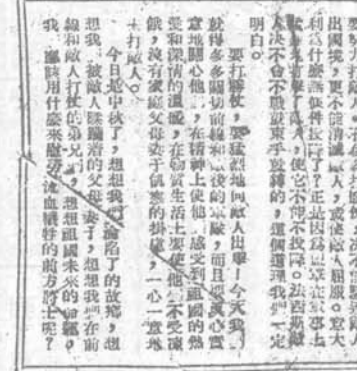 出國境，更不能消滅敵人，或使敵人屈服。意大
利為什麼無條件投降了？正是因為盟軍在軍事上
使它不能不投降。法西斯敵
人決不會不戰
這個道理我們一定
明白。
要打勝仗，要猛烈地向敵人出擊！今天我
就得多多關切前線和敵後的軍隊，而且要真心實
意地關心他，在精神上使他感受到祖國的熱
愛和深情的溫暖，在物質生活上要使他不受凍
餓，沒有家庭父母妻子飢寒的掛慮，一心一意地
去打敵人。
今日是中秋了，想想我們淪陷了的故鄉，想
想我被敵人蹂躪着的父母妻子，想想我們在前
線和敵人打仗的弟兄，想想祖國未來的命運，
我應該用什麼來慰勞流血犧牲的前方將士呢？